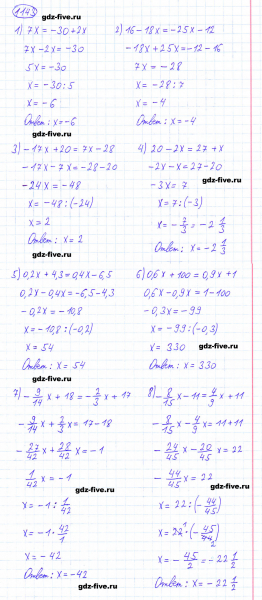 1143
gdz-five.ru
1) 7x = -30 + 2x
7x - 2x = -30
5x = -30
x = -30 : 5
x = -6
Ответ: x = -6
gdz-five.ru
2) 16 - 18x = -25x - 12
-18x + 25x = -12 - 16
gdz-five.ru
7x = -28
x = -28 : 7
x = -4
Ответ: x = -4
3) -17x + 20 = 7x - 28
-17x - 7x = -28 - 20
-24x = -48
x = -48 : (-24)
x = 2
Ответ: x = 2
gdz-five.ru
4) 20 - 2x = 27 + x
-2x - x = 27 - 20
gdz-five.ru
-3x = 7
x = 7 : (-3)
x = -7/3 = -2 1/3
Ответ: x = -2 1/3
gdz-five.ru
5) 0,2x + 4,3 = 0,4x - 6,5
0,2x - 0,4x = -6,5 - 4,3
-0,2x = -10,8
x = -10,8 : (-0,2)
x = 54
Ответ: x = 54
gdz-five.ru
6) 0,6x + 100 = 0,9x + 1
0,6x - 0,9x = 1 - 100
-0,3x = -99
x = -99 : (-0,3)
x = 330
gdz-five.ru
Ответ: x = 330
7) -9/14 x + 18 = -2/3 x + 17
-9/14 x + 2/3 x = 17 - 18
-27/42 x + 28/42 x = -1
1/42 x = -1
gdz-five.ru
x = -1 : 1/42
x = -1 · 42/1
x = -42
Ответ: x = -42
8) -8/15 x - 11 = 4/9 x + 11
gdz-five.ru
-8/15 x - 4/9 x = 11 + 11
-24/45 x - 20/45 x = 22
-44/45 x = 22
x = 22 : (-44/45)
gdz-five.ru
x = 22 · (-45/44)
x = -45/2 = -22 1/2
gdz-five.ru
Ответ: x = -22 1/2